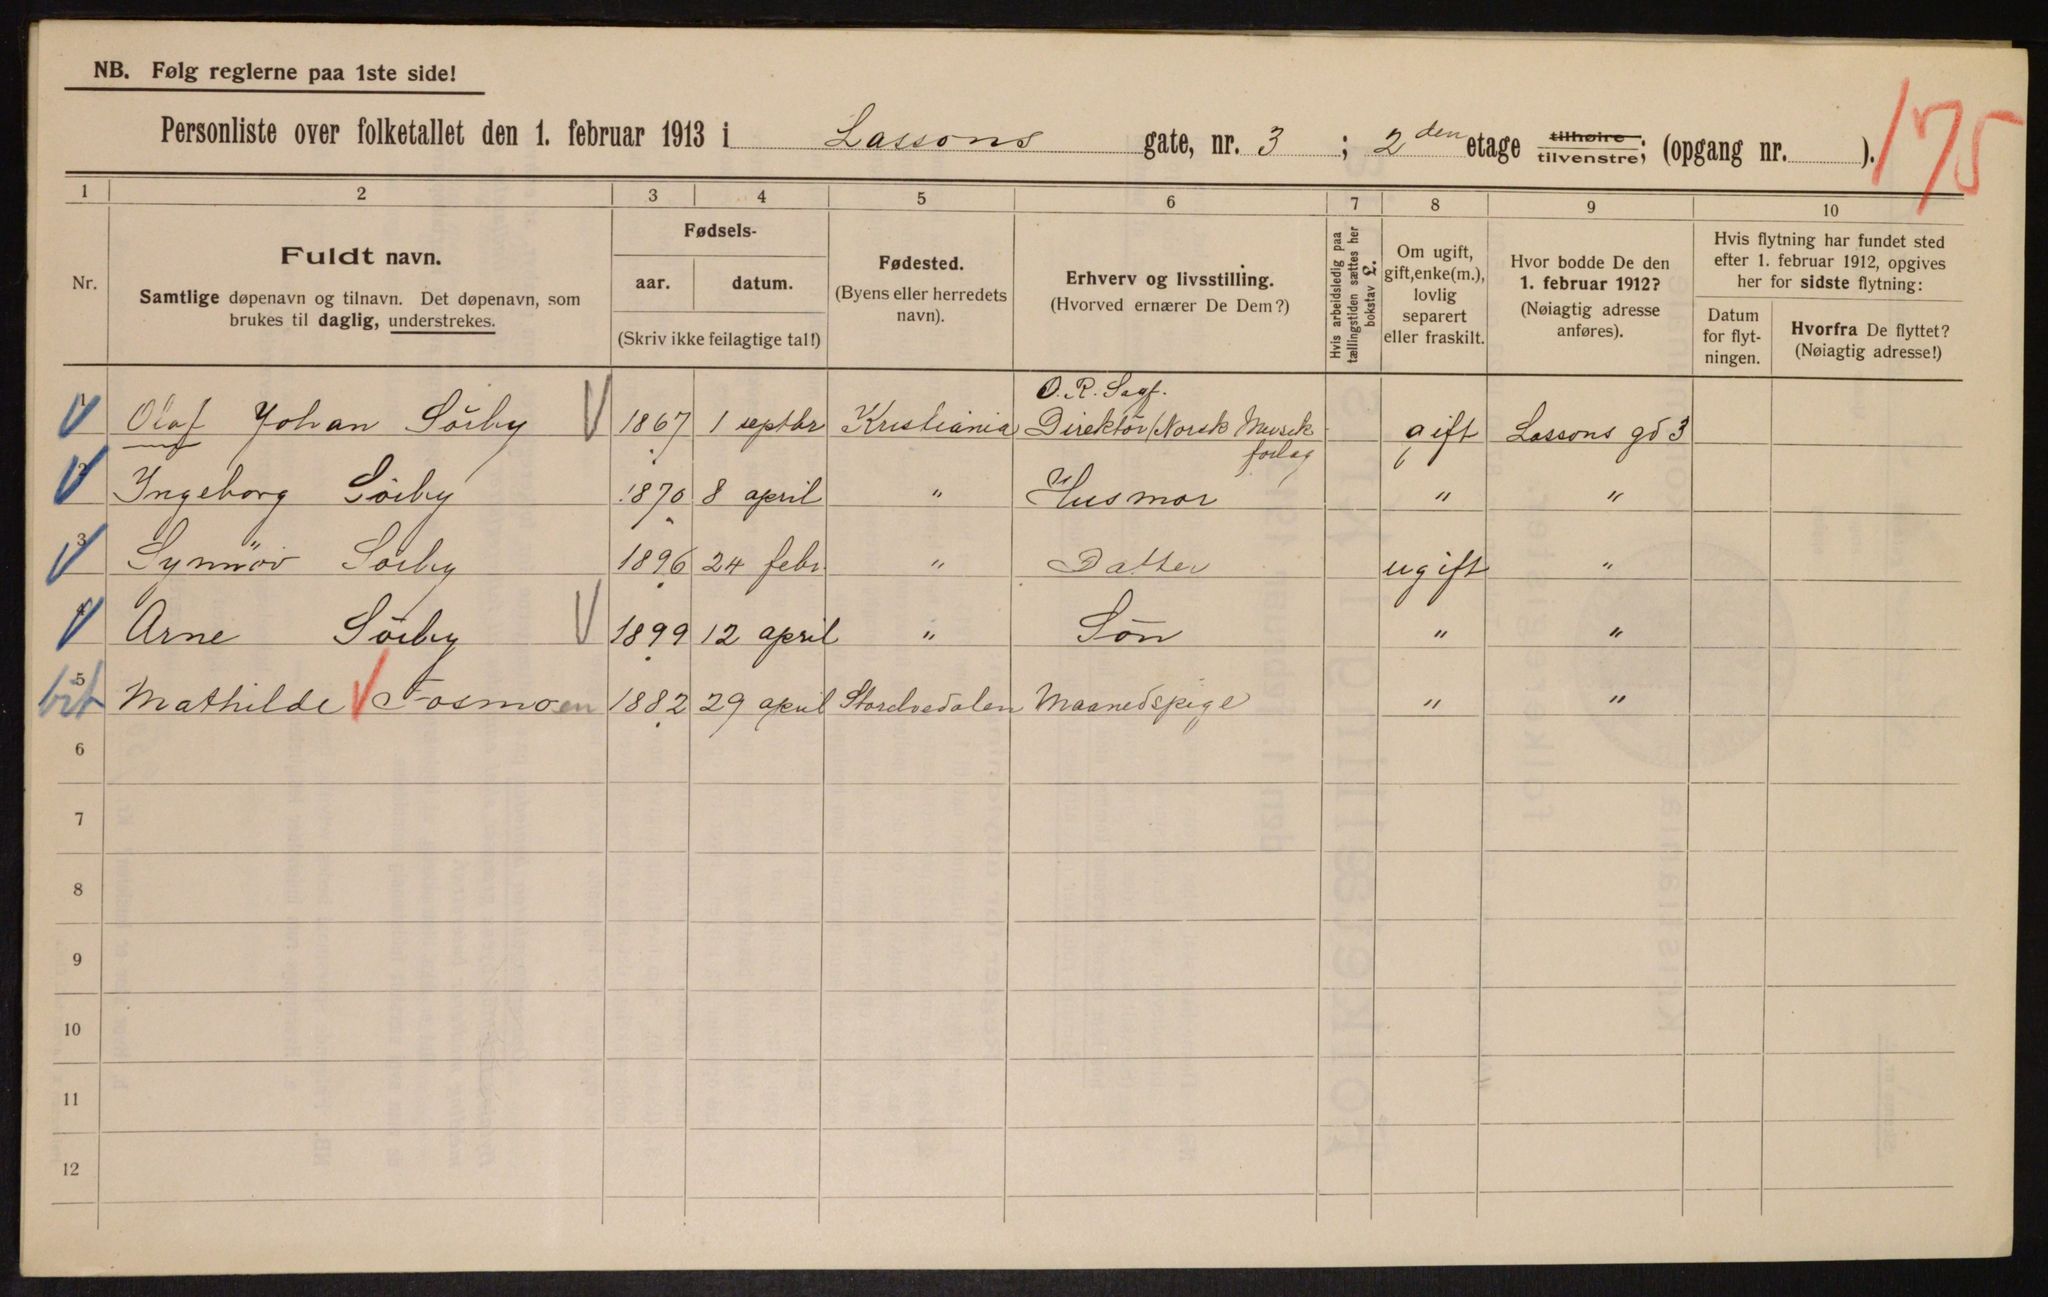 NB. Følg reglerne paa 1ste side!
175
Personliste over folketallet den 1. februar 1913 i Lassons gate, nr. 3 ; 2 den etage tilhøire tilvenstre; (opgang nr. ).
1 2 3 4 5 6 7 8 9 10
Nr.
Fuldt navn.
Samtlige døpenavn og tilnavn. Det døpenavn, som
brukes til daglig, understrekes.
Fødsels-
aar. datum.
(Skriv ikke feilagtige tal!)
Fødested.
(Byens eller herredets
navn).
Erhverv og livsstilling.
(Hvorved ernærer De Dem?)
Hvis arbeidsledig paa
tællingstiden sættes her
bokstav L.
Om ugift,
gift, enke(m.),
lovlig
separert
eller fraskilt.
Hvor bodde De den
1. februar 1912?
(Nøiagtig adresse
anføres).
Hvis flytning har fundet sted
efter 1. februar 1912, opgives
her for sidste flytning:
Datum
for flyt-
ningen.
Hvorfra De flyttet?
(Nøiagtig adresse!)
O. R. Sagf.
1 Olaf Johan Sörby 1867 1 septbr Kristiania Direktör / Norsk Musik gift Lassons gd 3
forlag
2 Ingeborg Sörby 1870 8 april " Husmor " "
3 Synnöv Sörby 1896 24 febr. " Datter ugift "
4 Arne Sörby 1899 12 april " Sön " "
5 Mathilde Fosmoen 1882 29 april Storelvedalen Maanedspige " "
6
7
8
9
10
11
12